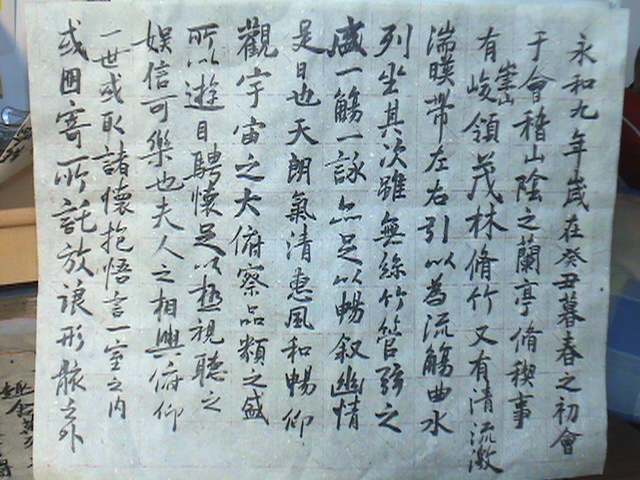 永和九年歲在癸丑暮春之初會
于會稽山陰之蘭亭脩稧事
有崇山峻領茂林脩竹又有清流激
湍暎帶左右引以為流觴曲水
列坐其次雖無絲竹管弦之
盛一觴一詠亦足以暢叙幽情
是日也天朗氣清惠風和暢仰
觀宇宙之大俯察品類之盛
所以遊目騁懷足以極視聽之
娛信可樂也夫人之相與俯仰
一世或取諸懷抱悟言一室之內
或因寄所託放浪形骸之外